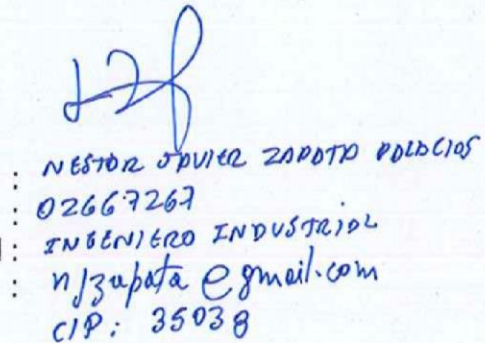 : NESTOR JAVIER ZAPATA PALACIOS
: 02667267
: INGENIERO INDUSTRIAL
: njzapata@gmail.com
CIP: 35038